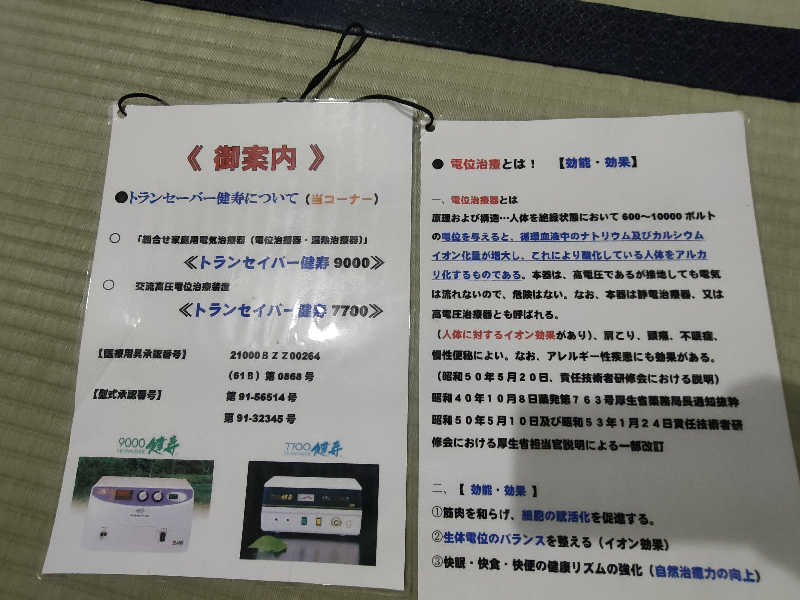 《 御案内 》
●トランセーバー健寿について（当コーナー）
○ 「組合せ家庭用電気治療器（電位治療器・温熱治療器）」
≪トランセイバー健寿 9000≫
○ 交流高圧電位治療装置
≪トランセイバー健寿 7700≫
【医療用具承認番号】 21000ＢＺＺ00264
（61Ｂ）第 0868 号
【型式承認番号】 第 91-56514 号
第 91-32345 号
9000 健寿
7700 健寿
● 電位治療とは！ 【効能・効果】
一、電位治療器とは
原理および構造…人体を絶縁状態において 600～10000 ボルト
の電位を与えると、循環血液中のナトリウム及びカルシウム
イオン化量が増大し、これにより酸化している人体をアルカ
リ化するものである。本器は、高電圧であるが接地しても電気
は流れないので、危険はない。なお、本器は静電治療器、又は
高電圧治療器とも呼ばれる。
（人体に対するイオン効果があり）、肩こり、頭痛、不眠症、
慢性便秘によい。なお、アレルギー性疾患にも効果がある。
（昭和５０年５月２０日、責任技術者研修会における説明）
昭和４０年１０月８日薬発第７６３号厚生省薬務局長通知抜粋
昭和５０年５月１０日及び昭和５３年１月２４日責任技術者研
修会における厚生省担当官説明による一部改訂
二、【 効能・効果 】
①筋肉を和らげ、細胞の賦活化を促進する。
②生体電位のバランスを整える（イオン効果）
③快眠・快食・快便の健康リズムの強化（自然治癒力の向上）